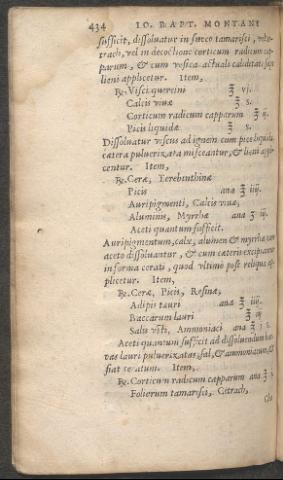 434 IO. BAPT. MONTANI
sufficit, dissoluatur in succo tamarisci, vel
trach, vel in decoctione corticum radicum cap
parum, & cum vesica actuali caliditate sple
lieni applicetur. Item,
℞. Visci quercini ℥ vj.
Calcis viuæ ℥ s.
Corticum radicum capparum ℥ ij.
Picis liquidæ ℥ s.
Dissoluatur viscus ad ignem cum pice liquida,
cætera puluerizata misceantur, & lieni appli
centur. Item,
℞. Ceræ, Terebinthinæ
Picis ana ℥ iiij.
Auripigmenti, Calcis viuæ,
Aluminis, Myrrhæ ana ℥ iij.
Aceti quantum sufficit.
Auripigmentum, calx, alumen & myrrha cum
aceto dissoluantur, & cum cæteris excipiantur
in forma cerati, quod vltimò post reliqua ap
plicetur. Item,
℞. Ceræ, Picis, Resinæ,
Adipis tauri ana ℥ iiij.
Baccarum lauri ℥ iij.
Salis Ammoniaci ana ℥ j. s.
Aceti quantum sufficit ad dissoluendum
lauri puluerizatas, sal, & ammoniacum, &
fiat ceratum. Item,
℞. Corticum radicum capparum ana ℥
Foliorum tamarisci, Cetrach,